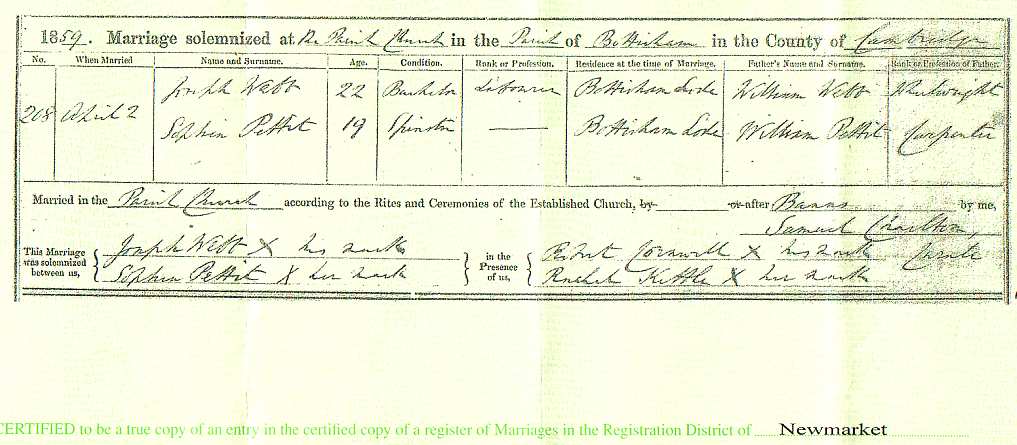 1859. Marriage solemnized at the Parish Church in the Parish of Bottisham in the County of Cambridge
No. When Married Name and Surname. Age. Condition. Rank or Profession. Residence at the time of Marriage. Father's Name and Surname. Rank or Profession of Father.
Joseph Webb 22 Bachelor Labourer Bottisham Lode William Webb Wheelwright
208 April 2
Sophia Pettit 19 Spinster Bottisham Lode William Pettit Carpenter
Married in the Parish Church according to the Rites and Ceremonies of the Established Church, by or after Banns by me,
Samuel Charlton,
Curate
This Marriage was solemnized between us, Joseph Webb X his mark in the Presence of us, Robert Cornwell X his mark
Sophia Pettit X her mark Rachel Kettle X her mark
CERTIFIED to be a true copy of an entry in the certified copy of a register of Marriages in the Registration District of Newmarket